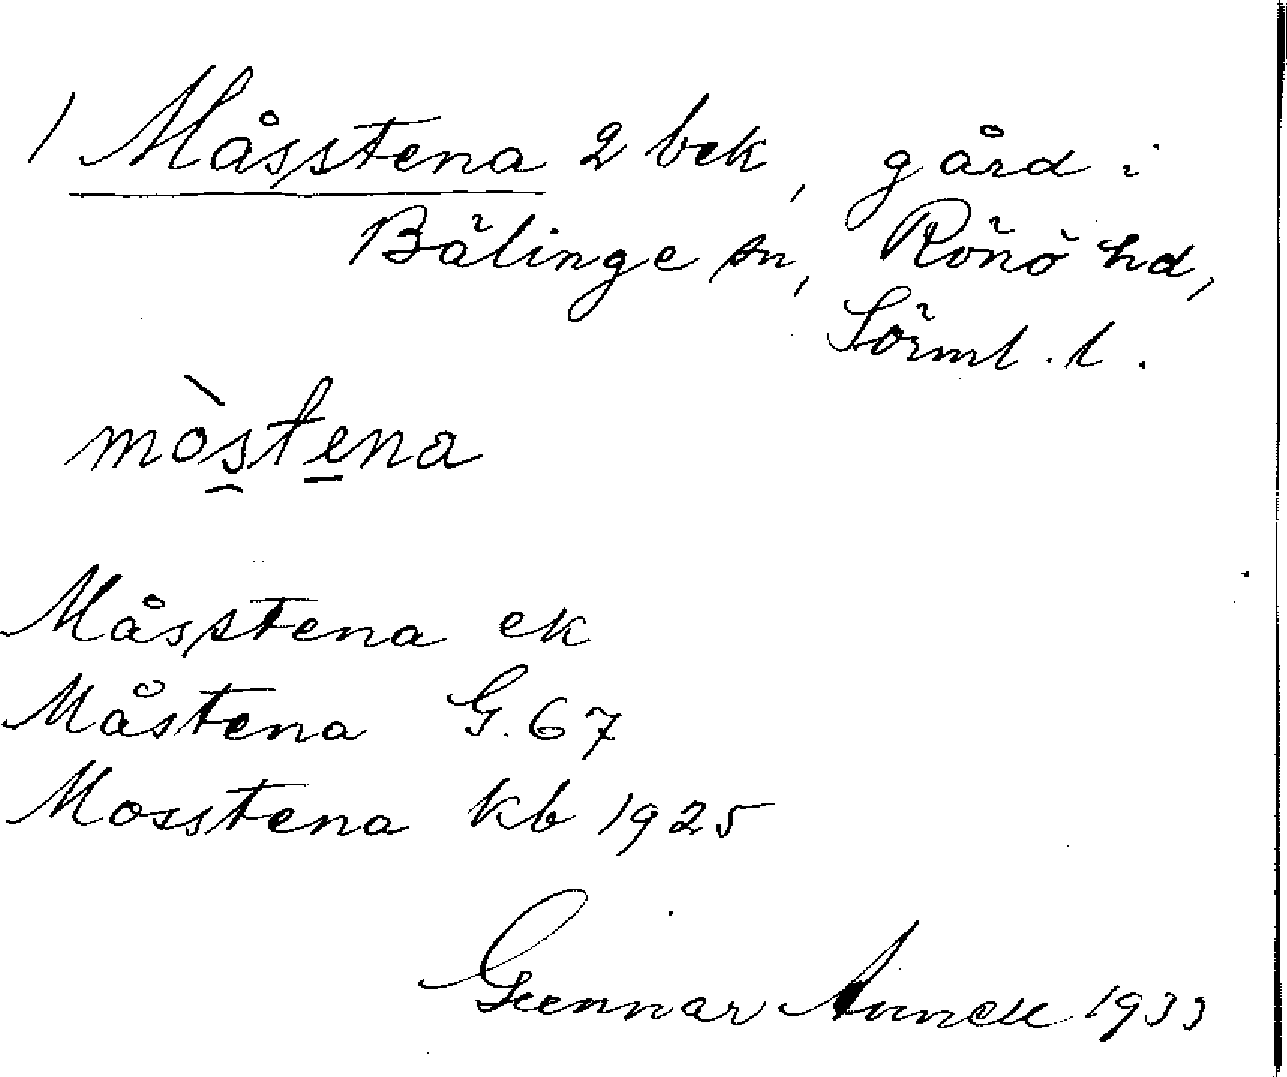 1 Måsstena 2 bek, gård i
Bälinge sn, Rönö hd,
Sörml. l.
mòstena
Måsstena ek
Måstena G. 67
Mosstena kb 1925
Gunnar 1933